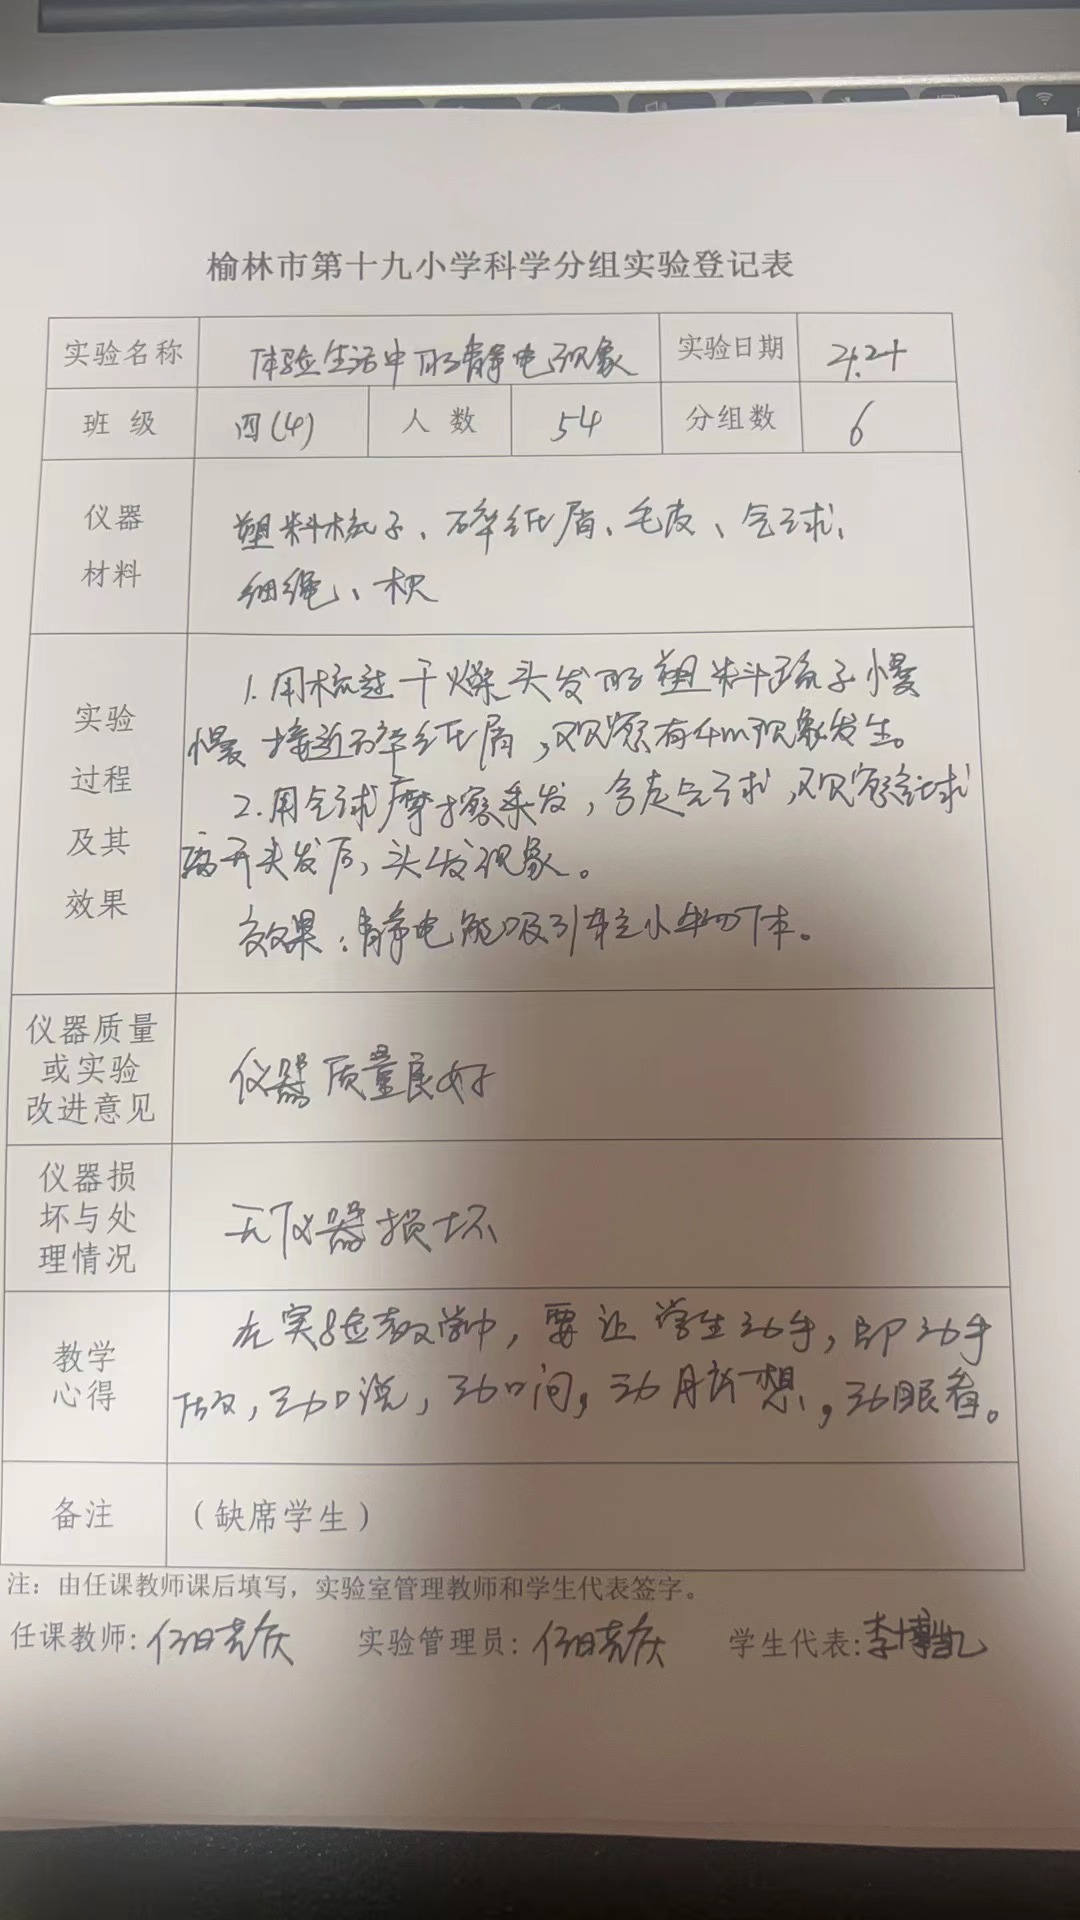 榆林市第十九小学科学分组实验登记表
实验名称 体验生活中的静电现象 实验日期 4.24
班级 四(4) 人数 54 分组数 6
仪器
材料
塑料梳子、碎纸屑、毛皮、气球、
细绳、
实验
过程
及其
效果
1.用梳过干燥头发的塑料梳子慢
慢接近碎纸屑,观察有什么现象发生。
2.用气球摩擦头发,拿走气球,观察气球
离开头发后,头发现象。
效果:静电能吸引轻小物体。
仪器质量
或实验
改进意见
仪器质量良好
仪器损
坏与处
理情况
无仪器损坏
教学
心得
在实验教学中,要让学生动手,即动手
做,动口说,动口问,动脑想,动眼看。
备注 (缺席学生)
注:由任课教师课后填写,实验室管理教师和学生代表签字。
任课教师: 实验管理员: 学生代表:李博凯